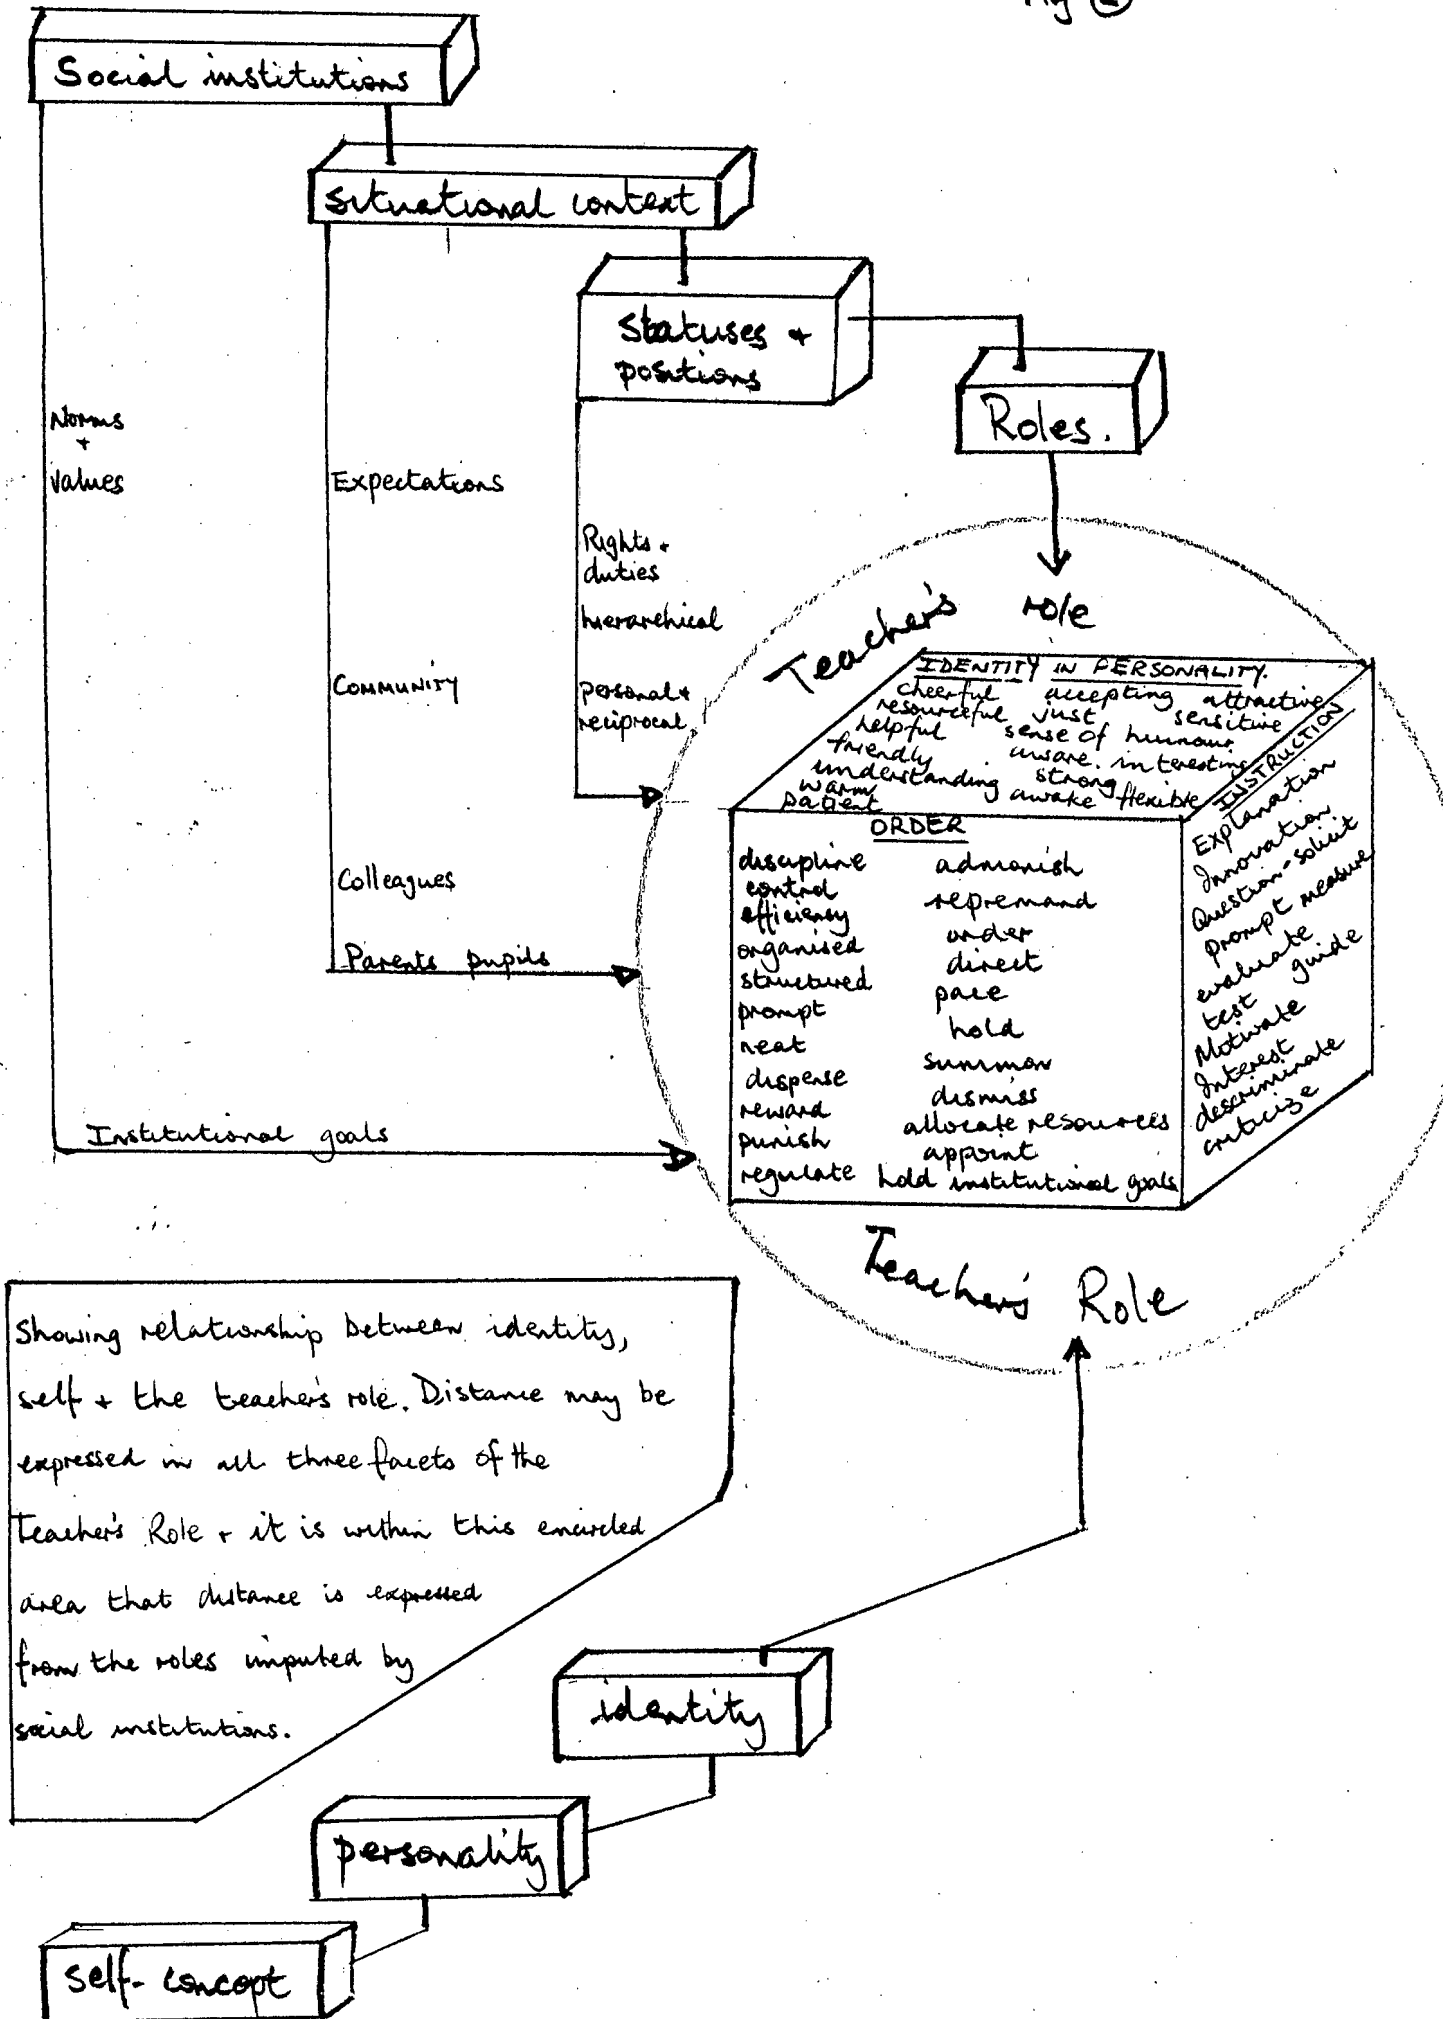 Fig 2
Social institutions
situational context
Statuses +
positions
Roles.
Norms
+
values
Expectations
Rights +
duties
hierarchical
Community
personal +
reciprocal
Colleagues
Parents pupils
Institutional goals
Teacher's role
IDENTITY IN PERSONALITY.
cheerful accepting attractive
resourceful just sensitive
helpful sense of humour
friendly aware. interesting
understanding strong
warm awake flexible
patient
ORDER
discipline admonish
control repremand
efficiency order
organised direct
structured pace
prompt hold
neat summon
dispense dismiss
reward allocate resources
punish appoint
regulate hold institutional goals
INSTRUCTION
Explanation
Innovation
Question-solicit
prompt measure
evaluate
test guide
Motivate
Interest
descriminate
criticize
Teacher's Role
Showing relationship between identity,
self + the teacher's role. Distance may be
expressed in all three facets of the
Teacher's Role + it is within this encircled
area that distance is expressed
from the roles imputed by
social institutions.
identity
personality
self-concept